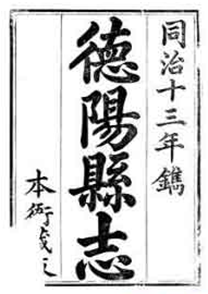 同治十三年鐫
德陽縣志
本衙藏之